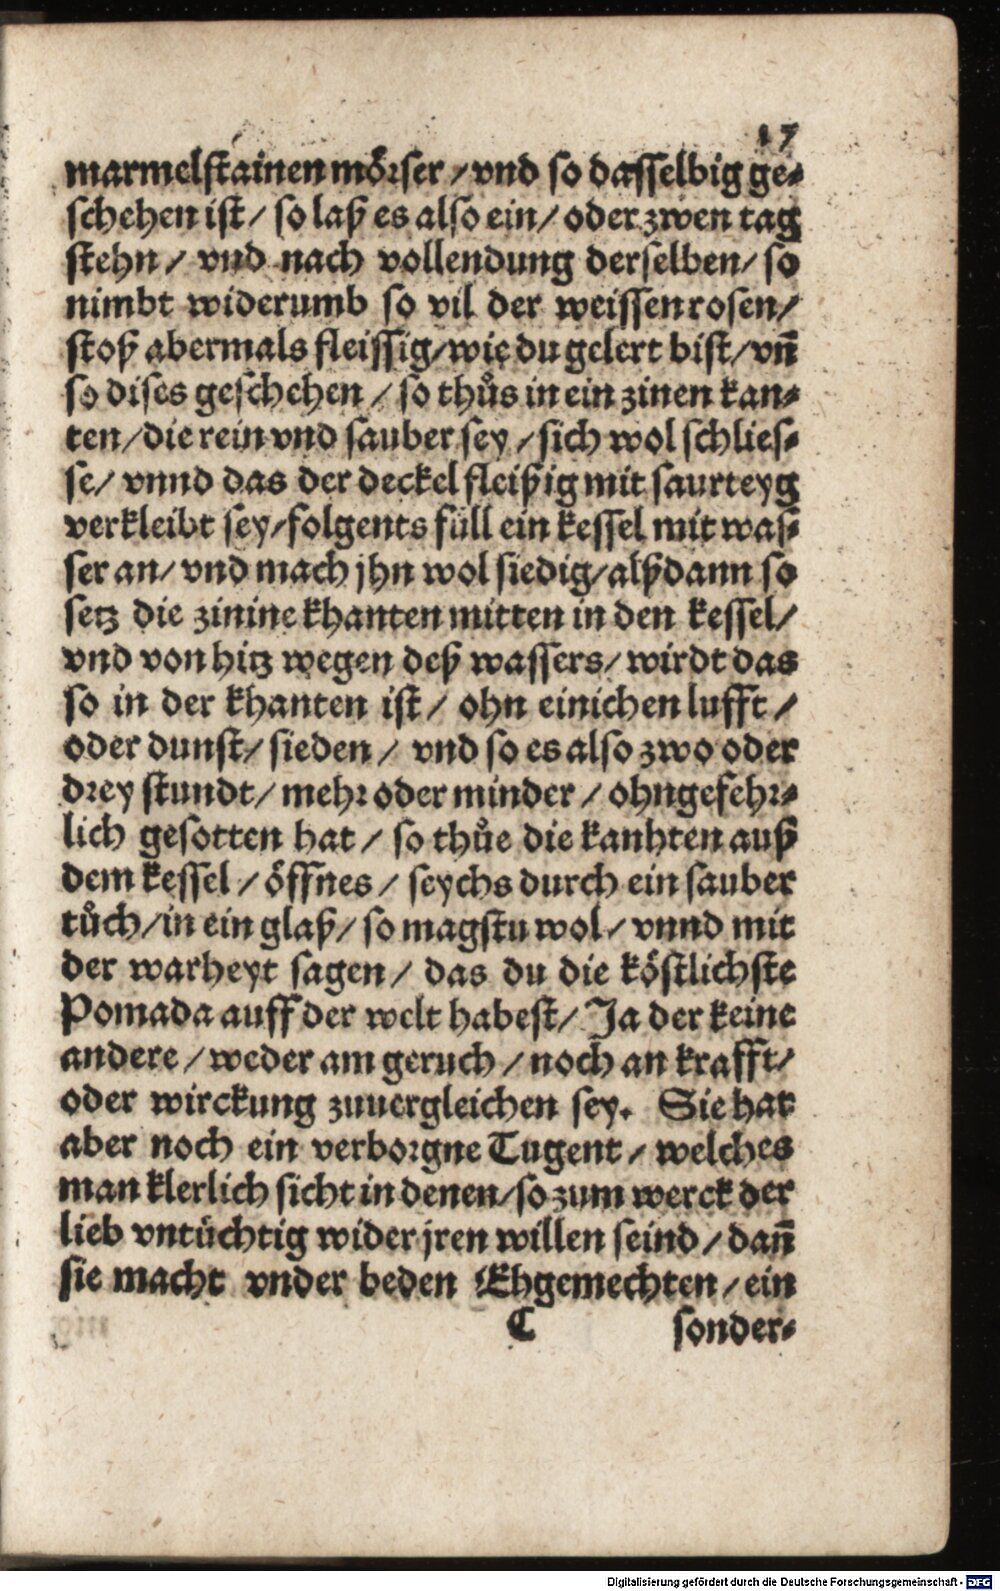 17
marmelstainen mörser / vnd so dasselbig ge-
schehen ist / so laß es also ein / oder zwen tag
stehn / vnd nach vollendung derselben / so
nimbt widerumb so vil der weissen rosen /
stoß abermals fleissig / wie du gelert bist / vn̄
so dises geschehen / so thůs in ein zinen kan-
ten / die rein vnd sauber sey / sich wol schlies-
se / vnnd das der deckel fleißig mit saurteyg
verkleibt sey / folgents füll ein kessel mit was-
ser an / vnd mach jhn wol siedig / alßdann so
setz die zinine khanten mitten in den kessel /
vnd von hitz wegen deß wassers / wirdt das
so in der khanten ist / ohn einichen lufft /
oder dunst / sieden / vnd so es also zwo oder
drey stundt / mehr oder minder / ohngefehr-
lich gesotten hat / so thůe die kanhten auß
dem kessel / öffnes / seychs durch ein sauber
tůch / in ein glaß / so magstu wol / vnnd mit
der warheyt sagen / das du die köstlichste
Pomada auff der welt habest / Ja der keine
andere / weder am geruch / noch an krafft /
oder wirckung zuuergleichen sey. Sie hat
aber noch ein verborgne Tugent / welches
man klerlich sicht in denen / so zum werck der
lieb vntüchtig wider jren willen seind / dan̄
sie macht vnder beden Ehgemechten / ein
C sonder-
Digitalisierung gefördert durch die Deutsche Forschungsgemeinschaft - DFG